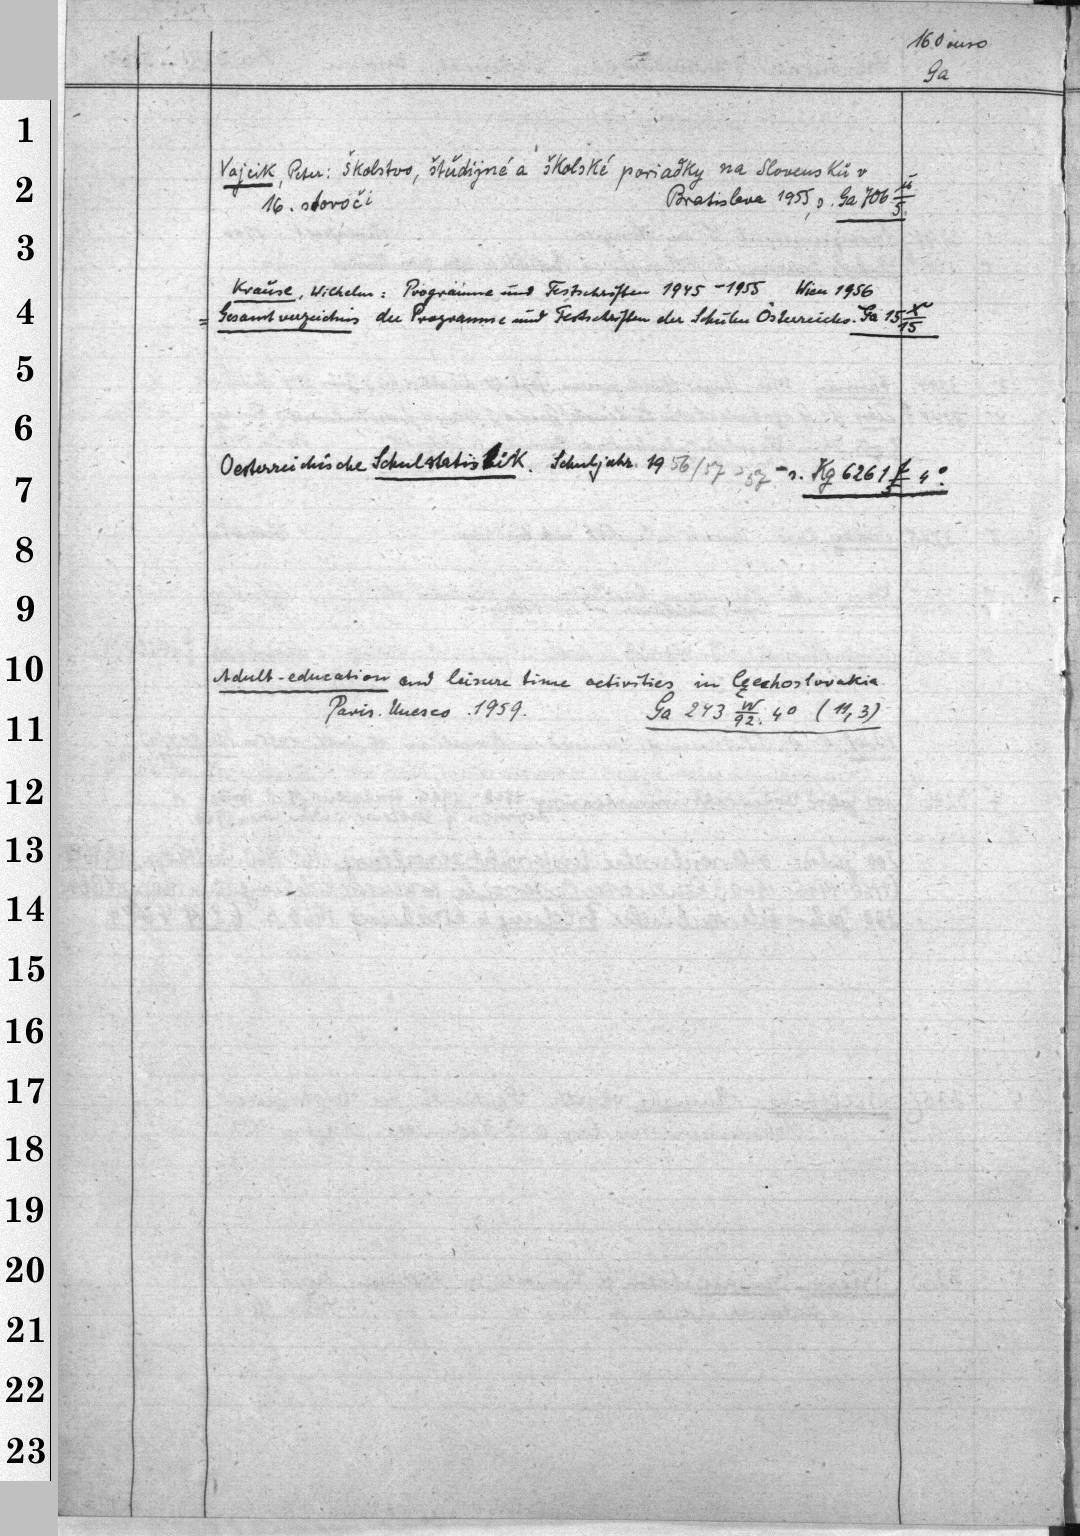 160
Ga
1
Vajcik, Peter: Školstvo, študijné a školské poriadky na Slovensku v
2
16. storočí Bratislava 1955, 8. Ga 706
3
Krause, Wilhelm: Programme und Festschriften 1945-1955 Wien 1956
4
= Gesamtverzeichnis der Programme und Festschriften der Schulen Österreichs. Ga 15 X/15
5
6
Oesterreichische Schulstatistik. Schuljahr. 1956/57 Hg 6261 4°.
7
8
9
10
Adult-education and leisure time activities in Czechoslovakia
Paris. Unesco. 1959. Ga 243 W/92. 4° (11,3)
11
12
13
14
15
16
17
18
19
20
21
22
23